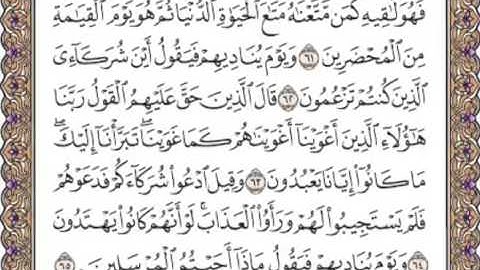 فَهُوَ لَٰقِيهِ كَمَن مَّتَّعْنَٰهُ مَتَٰعَ ٱلْحَيَوٰةِ ٱلدُّنْيَا ثُمَّ هُوَ يَوْمَ ٱلْقِيَٰمَةِ
مِنَ ٱلْمُحْضَرِينَ ٦١ وَيَوْمَ يُنَادِيهِمْ فَيَقُولُ أَيْنَ شُرَكَآءِىَ
ٱلَّذِينَ كُنتُمْ تَزْعُمُونَ ٦٢ قَالَ ٱلَّذِينَ حَقَّ عَلَيْهِمُ ٱلْقَوْلُ رَبَّنَا
هَٰٓؤُلَآءِ ٱلَّذِينَ أَغْوَيْنَآ أَغْوَيْنَٰهُمْ كَمَا غَوَيْنَا ۖ تَبَرَّأْنَآ إِلَيْكَ ۖ
مَا كَانُوٓا۟ إِيَّانَا يَعْبُدُونَ ٦٣ وَقِيلَ ٱدْعُوا۟ شُرَكَآءَكُمْ فَدَعَوْهُمْ
فَلَمْ يَسْتَجِيبُوا۟ لَهُمْ وَرَأَوُا۟ ٱلْعَذَابَ ۚ لَوْ أَنَّهُمْ كَانُوا۟ يَهْتَدُونَ
٦٤ وَيَوْمَ يُنَادِيهِمْ فَيَقُولُ مَاذَآ أَجَبْتُمُ ٱلْمُرْسَلِينَ ٦٥